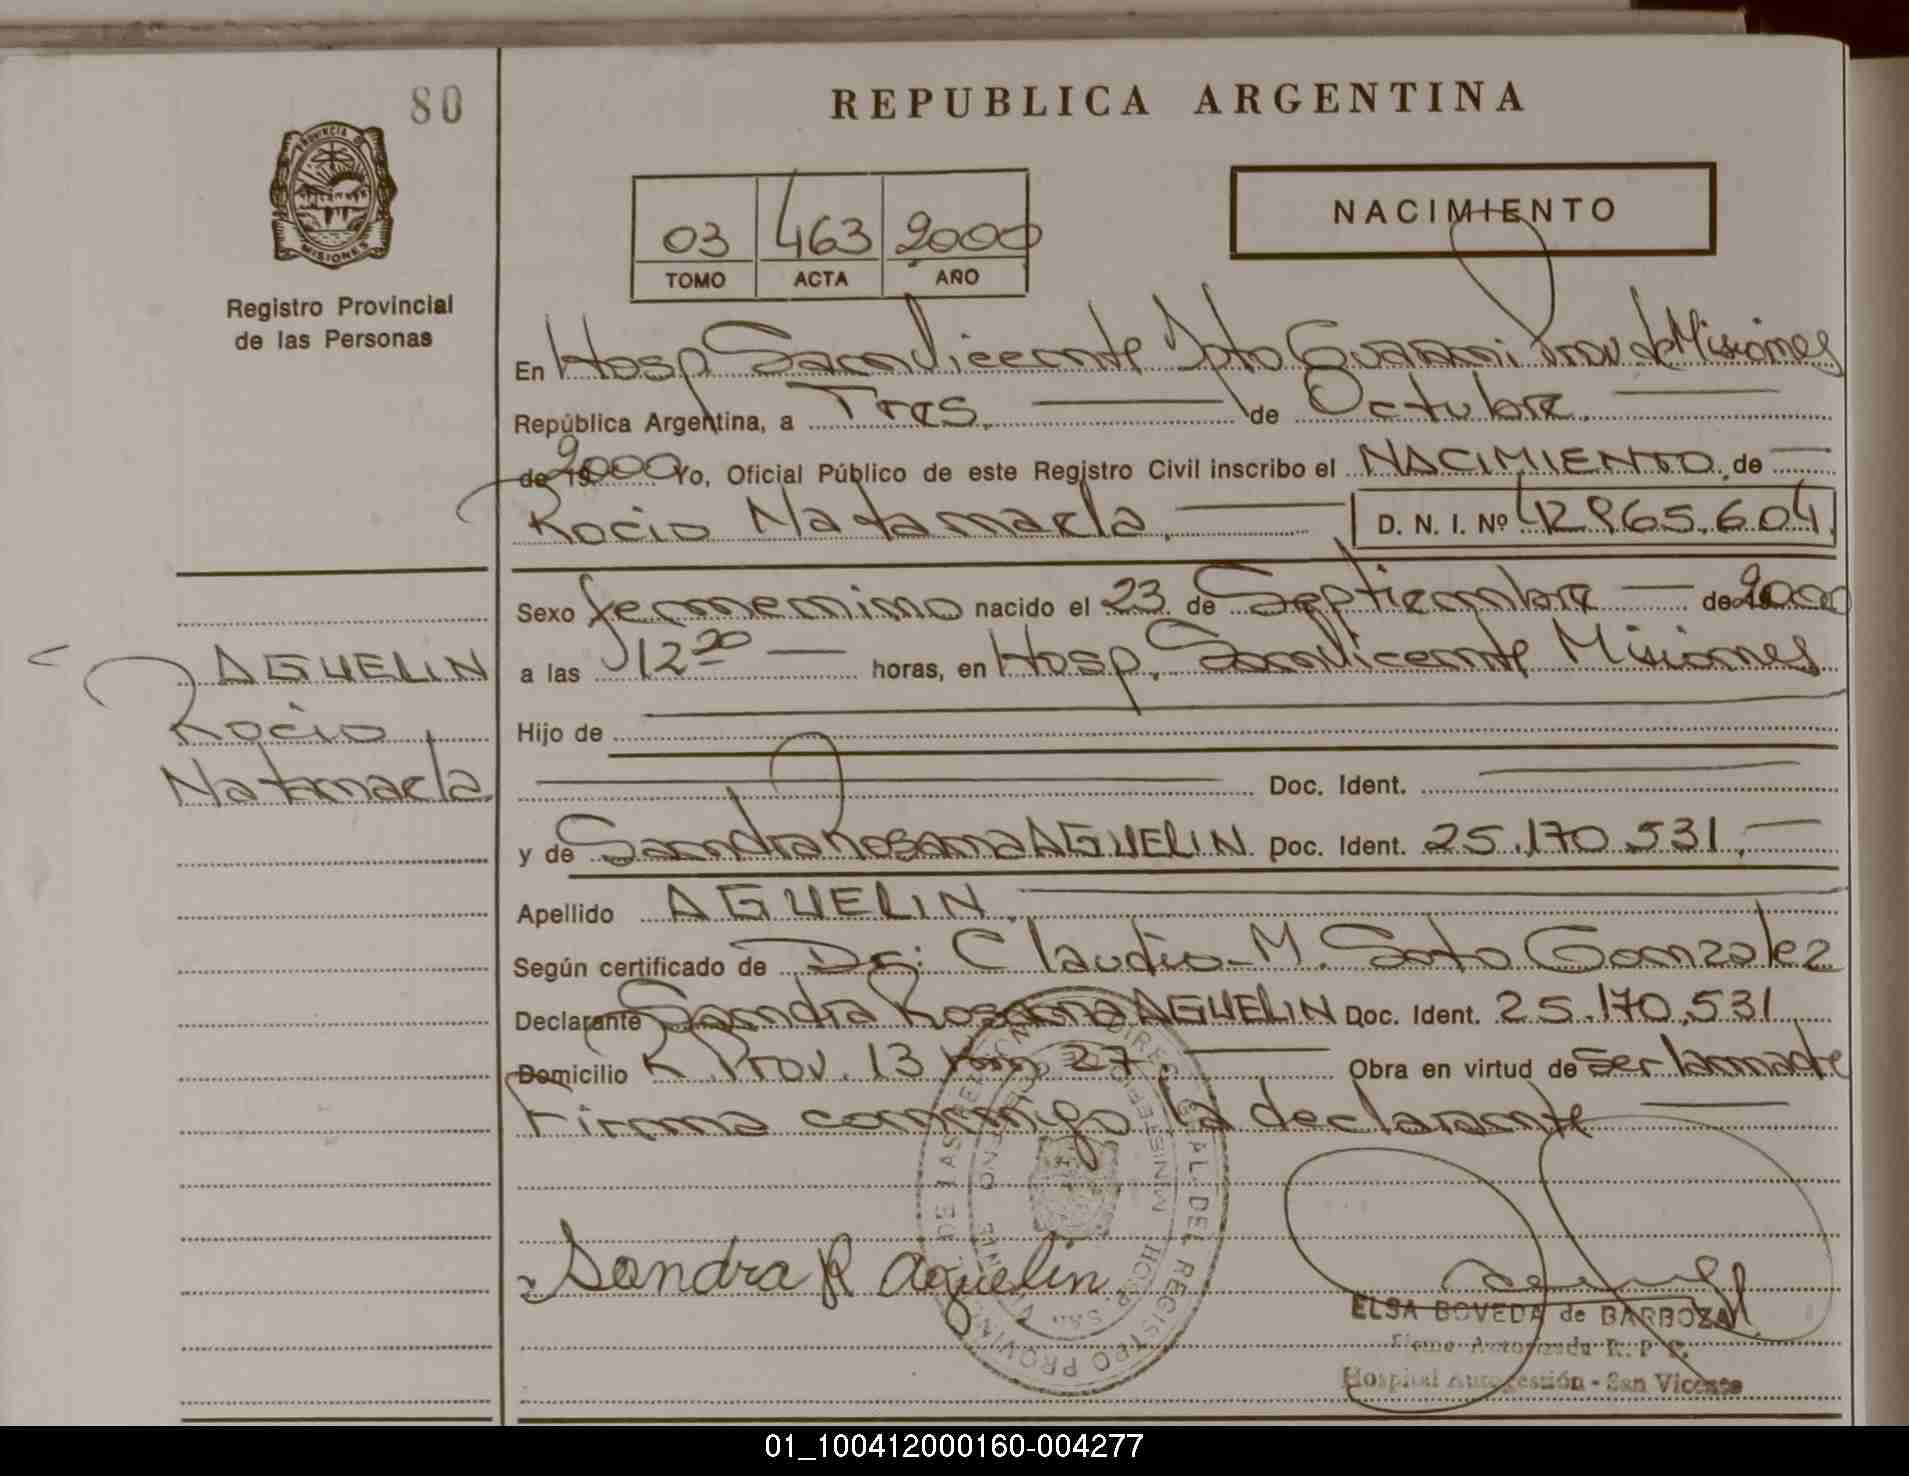 80
REPUBLICA ARGENTINA
PROVINCIA DE
MISIONES
Registro Provincial
de las Personas
03 463 2000
TOMO ACTA AÑO
NACIMIENTO
En Hosp San Vicente Dpto Guarani Prov. de Misiones
República Argentina, a Tres. de Octubre
de 19 2000 Yo, Oficial Público de este Registro Civil inscribo el NACIMIENTO. de
Rocio Natamaela. D. N. I. Nº 42.865.604
Sexo femenino nacido el 23 de Septiembre de 2000
a las 12 20 horas, en Hosp. San Vicente Misiones
AGUELIN
Rocio
Natamaela
Hijo de
Doc. Ident.
y de Sandra Rosana AGUELIN Doc. Ident. 25.170.531.
Apellido AGUELIN.
Según certificado de Dr: Claudio M. Soto Gonzalez
Declarante Sandra Rosana AGUELIN Doc. Ident. 25.170.531
Domicilio R. Prov. 13 km 27. Obra en virtud de ser la madre
Firma conmigo la declarante
Sandra R Aguelin
ELSA BOVEDA de BARBOZA
Firma Autorizada R. P. P.
Hospital Autogestión - San Vicente
01_100412000160-004277